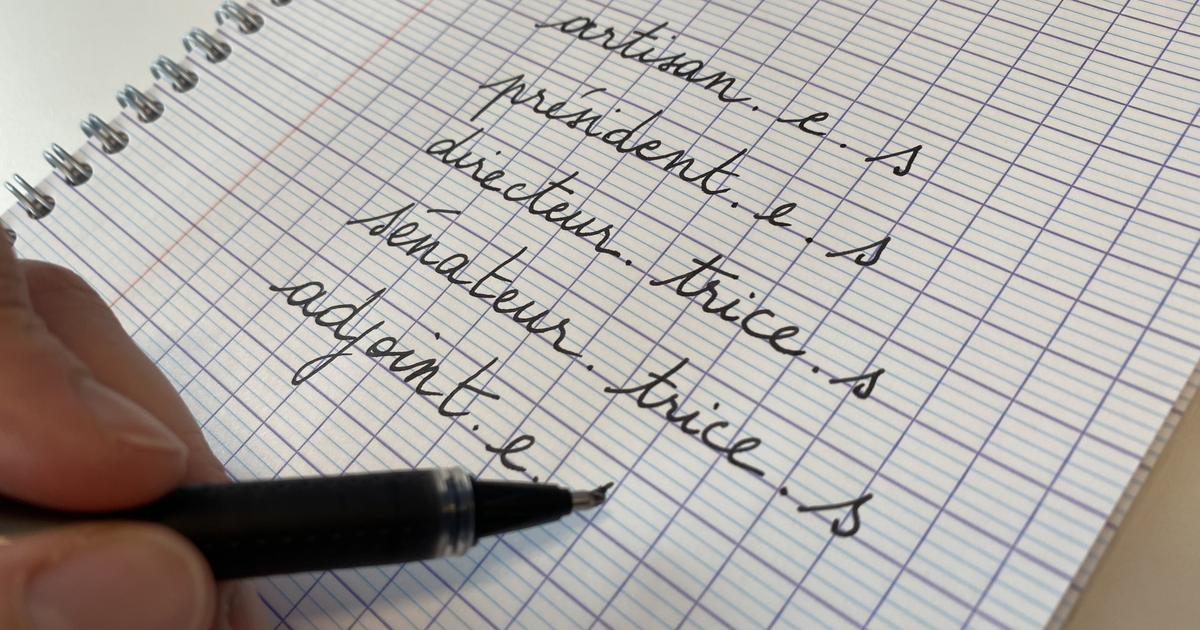 artisan.e.s
président.e.s
directeur.trice.s
sénateur.trice.s
adjoint.e.